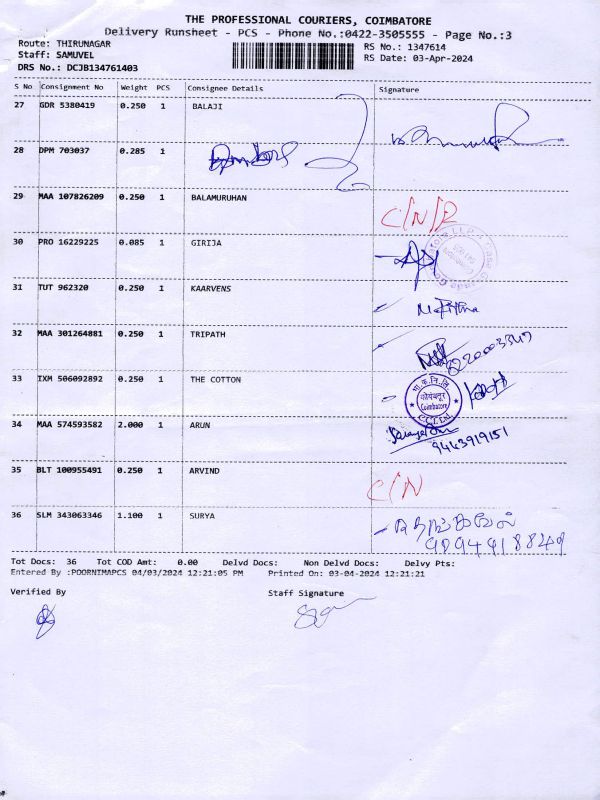 THE PROFESSIONAL COURIERS, COIMBATORE
Delivery Runsheet - PCS - Phone No.:0422-3505555 - Page No.:3
Route: THIRUNAGAR
RS No.: 1347614
Staff: SAMUVEL
RS Date: 03-Apr-2024
DRS No.: DCJB134761403
S No Consignment No Weight PCS Consignee Details Signature
27 GDR 5380419 0.250 1 BALAJI
28 DPM 703037 0.285 1
29 MAA 107826209 0.250 1 BALAMURUHAN
C/N/R
30 PRO 16229225 0.085 1 GIRIJA
31 TUT 962320 0.250 1 KAARVENS
32 MAA 301264881 0.250 1 TRIPATH
33 IXM 506092892 0.250 1 THE COTTON
भा.क.नि.लि
कोयंबत्तूर
Coimbatore
34 MAA 574593582 2.000 1 ARUN
9443919151
35 BLT 100955491 0.250 1 ARVIND
C/N
36 SLM 343063346 1.100 1 SURYA
Tot Docs: 36 Tot COD Amt: 0.00 Delvd Docs: Non Delvd Docs: Delvy Pts:
Entered By :POORNIMAPCS 04/03/2024 12:21:05 PM Printed On: 03-04-2024 12:21:21
Verified By Staff Signature